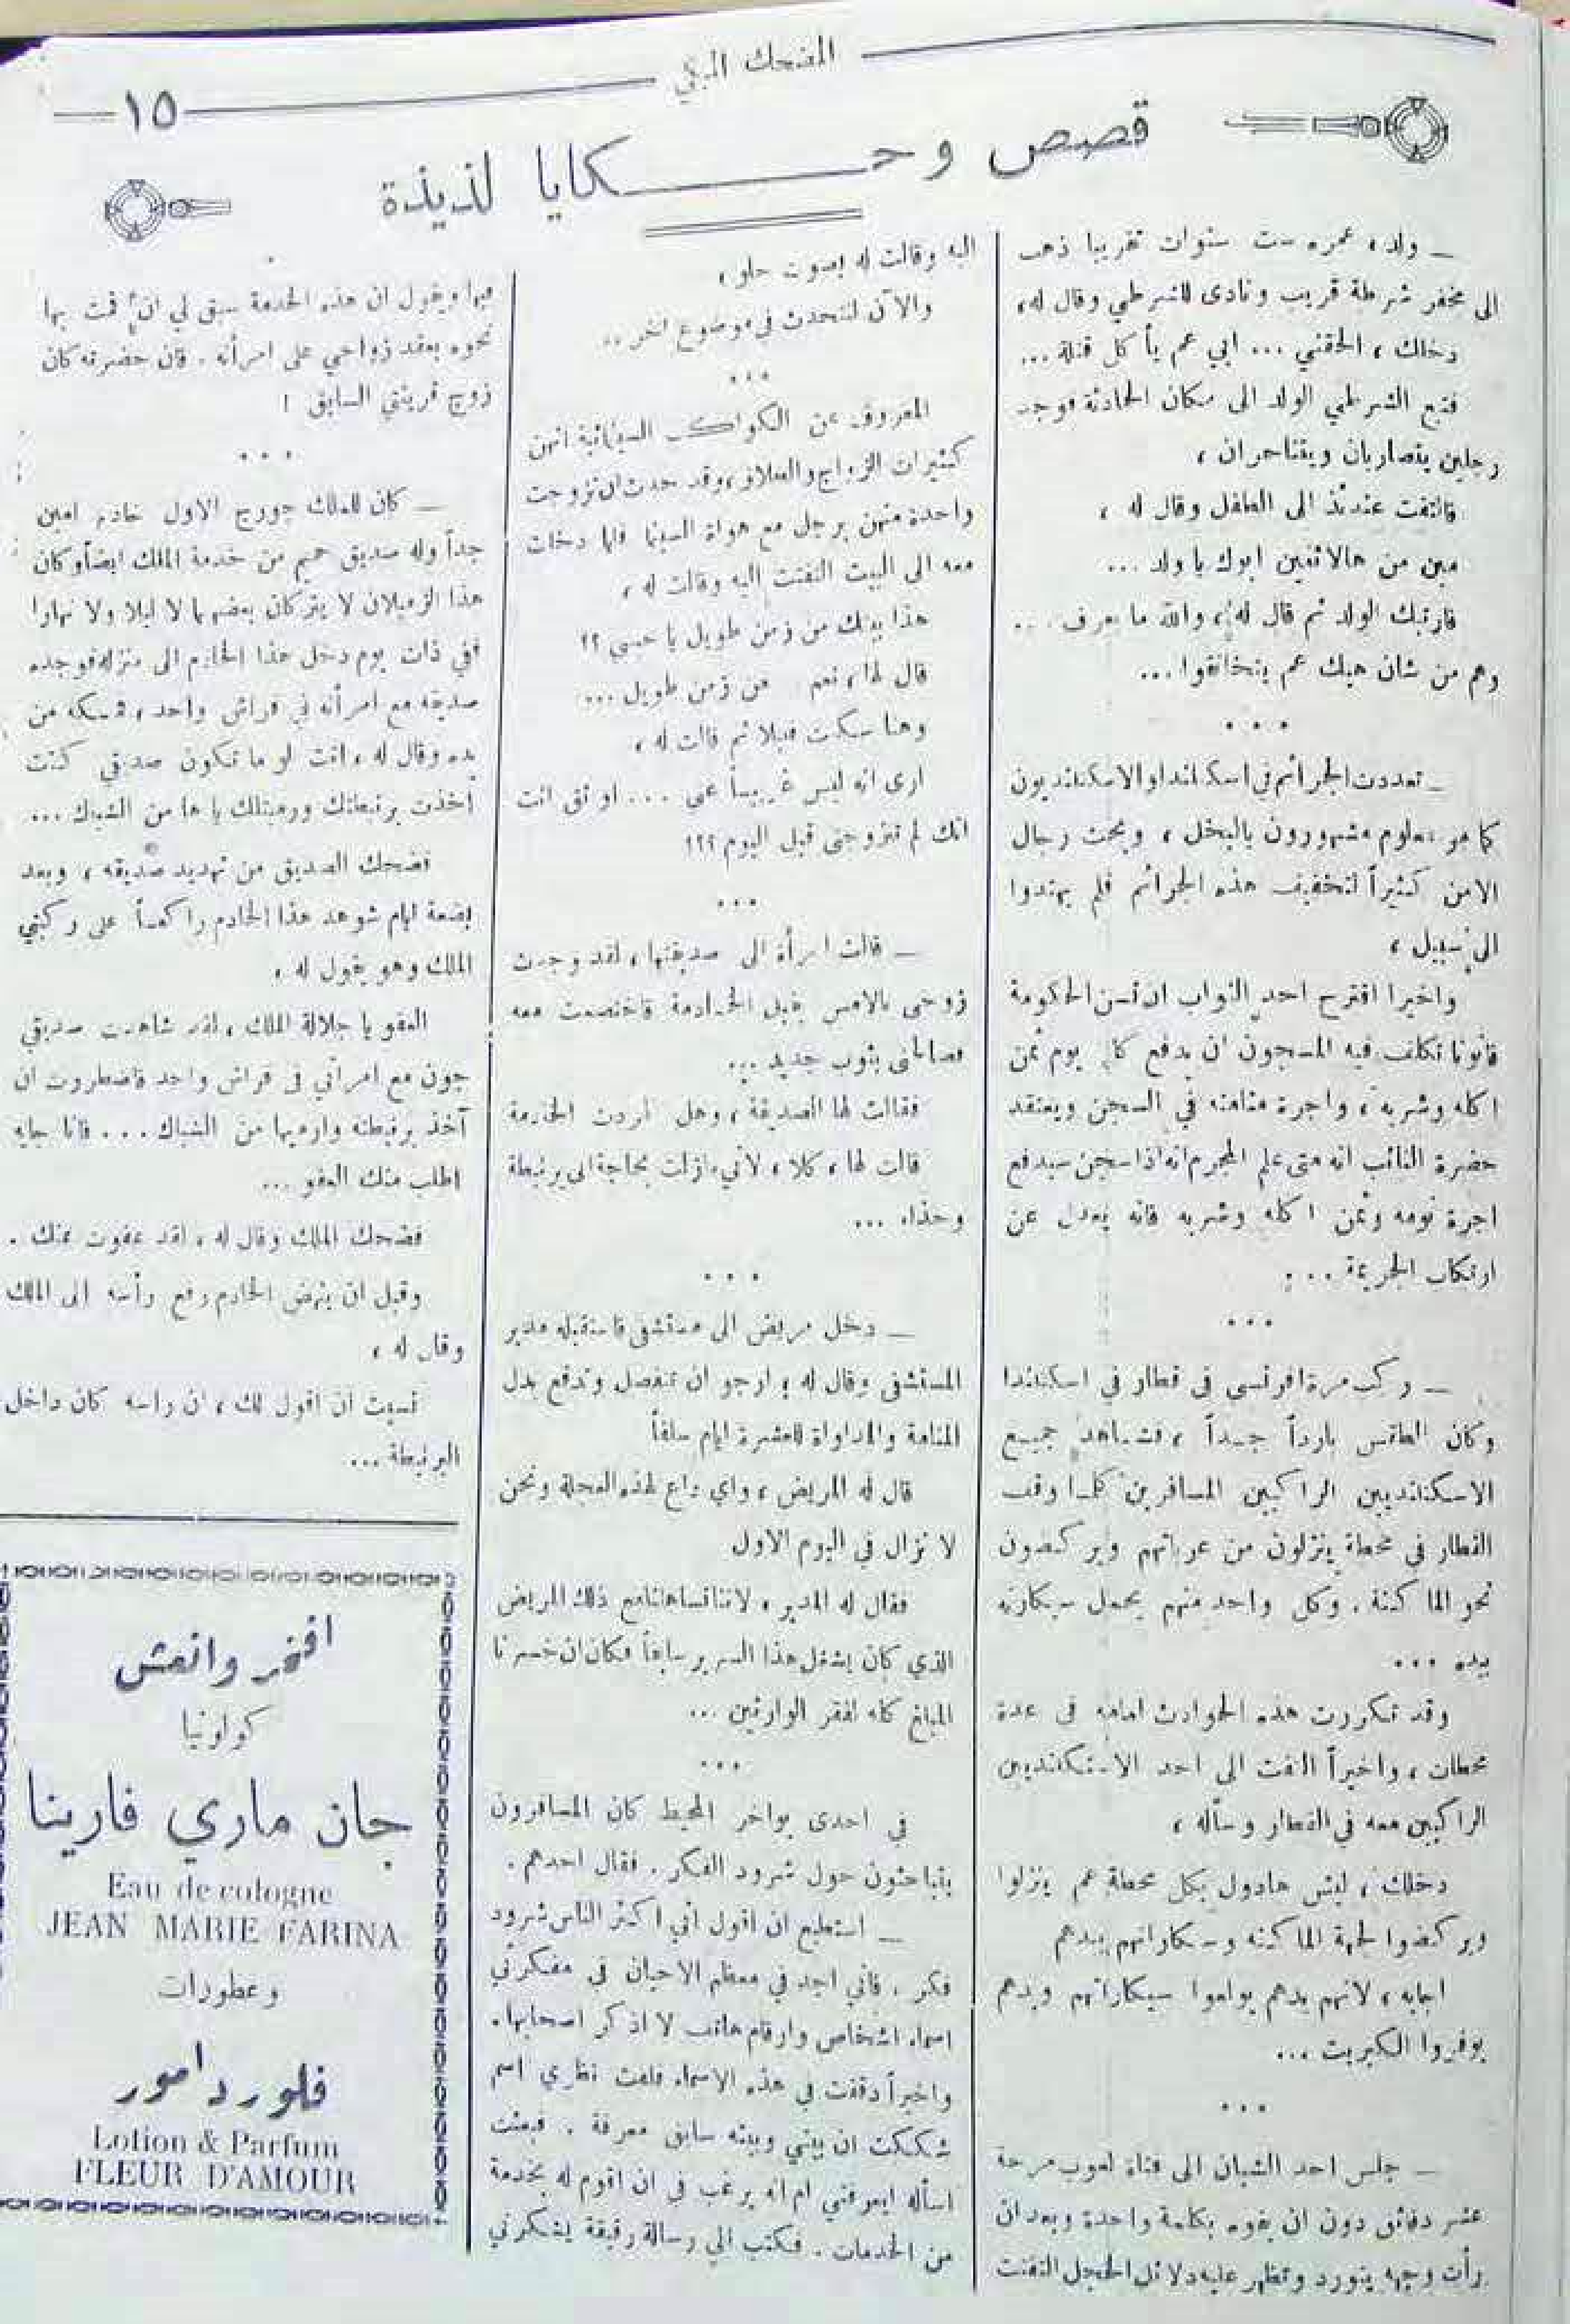 المضحك المبكي
١٥
قصص وحكايا لذيذة
— ولد، عمره ست سنوات تقريبا ذهب
الى مخفر شرطة قريب ونادى للشرطي وقال له،
دخلك، الحقني ... ابي عم يأكل قتلة ...
فتبع الشرطي الولد الى مكان الحادثة فوجد
رجلين يتضاربان ويتناحران،
فالتفت عندئذ الى الطفل وقال له،
مين من هالاثنين ابوك يا ولد ...
فارتبك الولد ثم قال له، والله ما بعرف ...
وهم من شان هيك عم يتخانقوا ...
...
— تعددت الجرائم في اسكتلندا والاسكتلنديون
كما هو معلوم مشهورون بالبخل، وبحث رجال
الامن كثيراً لتخفيف هذه الجرائم فلم يهتدوا
الى سبيل،
واخيرا اقترح احد النواب ان تسن الحكومة
قانونا تكلف فيه المسجون ان يدفع كل يوم ثمن
اكله وشربه، واجرة منامته في السجن ويعتقد
حضرة النائب انه متى علم المجرم انه اذا سجن سيدفع
اجرة نومه وثمن اكله وشربه فانه يعدل عن
ارتكاب الجريمة ...
...
— ركب مرة افرنسي في قطار في اسكتلندا
وكان الطقس بارداً جداً، فشاهد جميع
الاسكتلنديين الراكبين المسافرين كلما وقف
القطار في محطة ينزلون من عرباتهم ويركضون
نحو الماكنة. وكل واحد منهم يحمل سيكارته
بيده ...
وقد تكررت هذه الحوادث امامه في عدة
محطات، واخيراً التفت الى احد الاسكتلنديين
الراكبين معه في القطار وسأله،
دخلك، ليش هادول بكل محطة عم ينزلوا
ويركضوا لجهة الماكينه وسيكاراتهم بيدهم
اجابه، لانهم بدهم يولعوا سيكاراتهم وبدهم
يوفروا الكبريت ...
...
— جلس احد الشبان الى فتاة لعوب مرحة
عشر دقائق دون ان يفوه بكلمة واحدة وبعد ان
رأت وجهه يتورد وتظهر عليه دلائل الخجل التفتت
اليه وقالت له بصوت حلو،
والآن لنتحدث في موضوع آخر ..
...
المعروف عن الكواكب السينمائية انهن
كثيرات الزواج والطلاق، وقد حدث ان تزوجت
واحدة منهن برجل مع هواة السينما فلما دخلت
معه الى البيت التفتت اليه وقالت له،
هذا بيتك من زمن طويل يا حبيبي ؟؟
قال لها، نعم من زمن طويل ...
وهنا سكتت قليلا ثم قالت له،
ارى انه ليس غريباً عني ... اواثق انت
انك لم تتزوجني قبل اليوم ؟؟؟
...
— قالت امرأة الى صديقتها، لقد وجدت
زوجي بالامس يقبل الخادمة فاختصمت معه
فصالحني بثوب جديد ...
فقالت لها الصديقة، وهل طردت الخادمة
قالت لها، كلا، لاني مازلت بحاجة الى برنيطة
وحذاء ...
...
— دخل مريض الى مستشفى فاستقبله مدير
المستشفى وقال له؛ ارجو ان تتفضل وتدفع بدل
المنامة والمداواة للعشرة ايام سلفاً
قال له المريض، واي داع لهذه العجلة ونحن
لا نزال في اليوم الاول
فقال له المدير، لاننا تساهلنا مع ذلك المريض
الذي كان يشغل هذا السرير سابقاً فكان ان خسرنا
المبلغ كله لفقر الوارثين ...
...
في احدى بواخر المحيط كان المسافرون
يتباحثون حول شرود الفكر. فقال احدهم.
— استطيع ان اقول اني اكثر الناس شرود
فكر. فاني اجد في معظم الاحيان في مفكرتي
اسماء اشخاص وارقام هاتف لا اذكر اصحابها.
واخيراً دققت في هذه الاسماء فلفت نظري اسم
شككت ان بيني وبينه سابق معرفة. فبعثت
اسأله ايعرفني ام انه يرغب في ان اقوم له بخدمة
من الخدمات. فكتب الي رسالة رقيقة يشكرني
فيها ويقول ان هذه الخدمة سبق لي ان قمت بها
نحوه بعقد زواجي على امرأته. فان حضرته كان
زوج قرينتي السابق !
...
— كان للملك جورج الاول خادم امين
جداً وله صديق حميم من خدمة الملك ايضاً وكان
هذا الزميلان لا يتركان بعضهما لا ليلا ولا نهارا
ففي ذات يوم دخل هذا الخادم الى منزله فوجد
صديقه مع امرأته في فراش واحد، فمسكه من
يده وقال له، انت لو ما تكون صديقي كنت
اخذت برنيطتك ورميتلك ياها من الشباك ...
فضحك الصديق من تهديد صديقه، وبعد
بضعة ايام شوهد هذا الخادم راكعاً على ركبتي
الملك وهو يقول له،
العفو يا جلالة الملك، لقد شاهدت صديقي
جون مع امرأتي في فراش واحد فاضطررت ان
آخذ برنيطته وارميها من الشباك ... فانا جايه
اطلب منك العفو ...
فضحك الملك وقال له، لقد عفوت عنك.
وقبل ان ينهض الخادم رفع رأسه الى الملك
وقال له،
نسيت ان اقول لك، ان راسه كان داخل
البرنيطة ...
افخر وانعش
كولونيا
جان ماري فارينا
Eau de cologne
JEAN MARIE FARINA
وعطورات
فلور دامور
Lotion & Parfum
FLEUR D'AMOUR